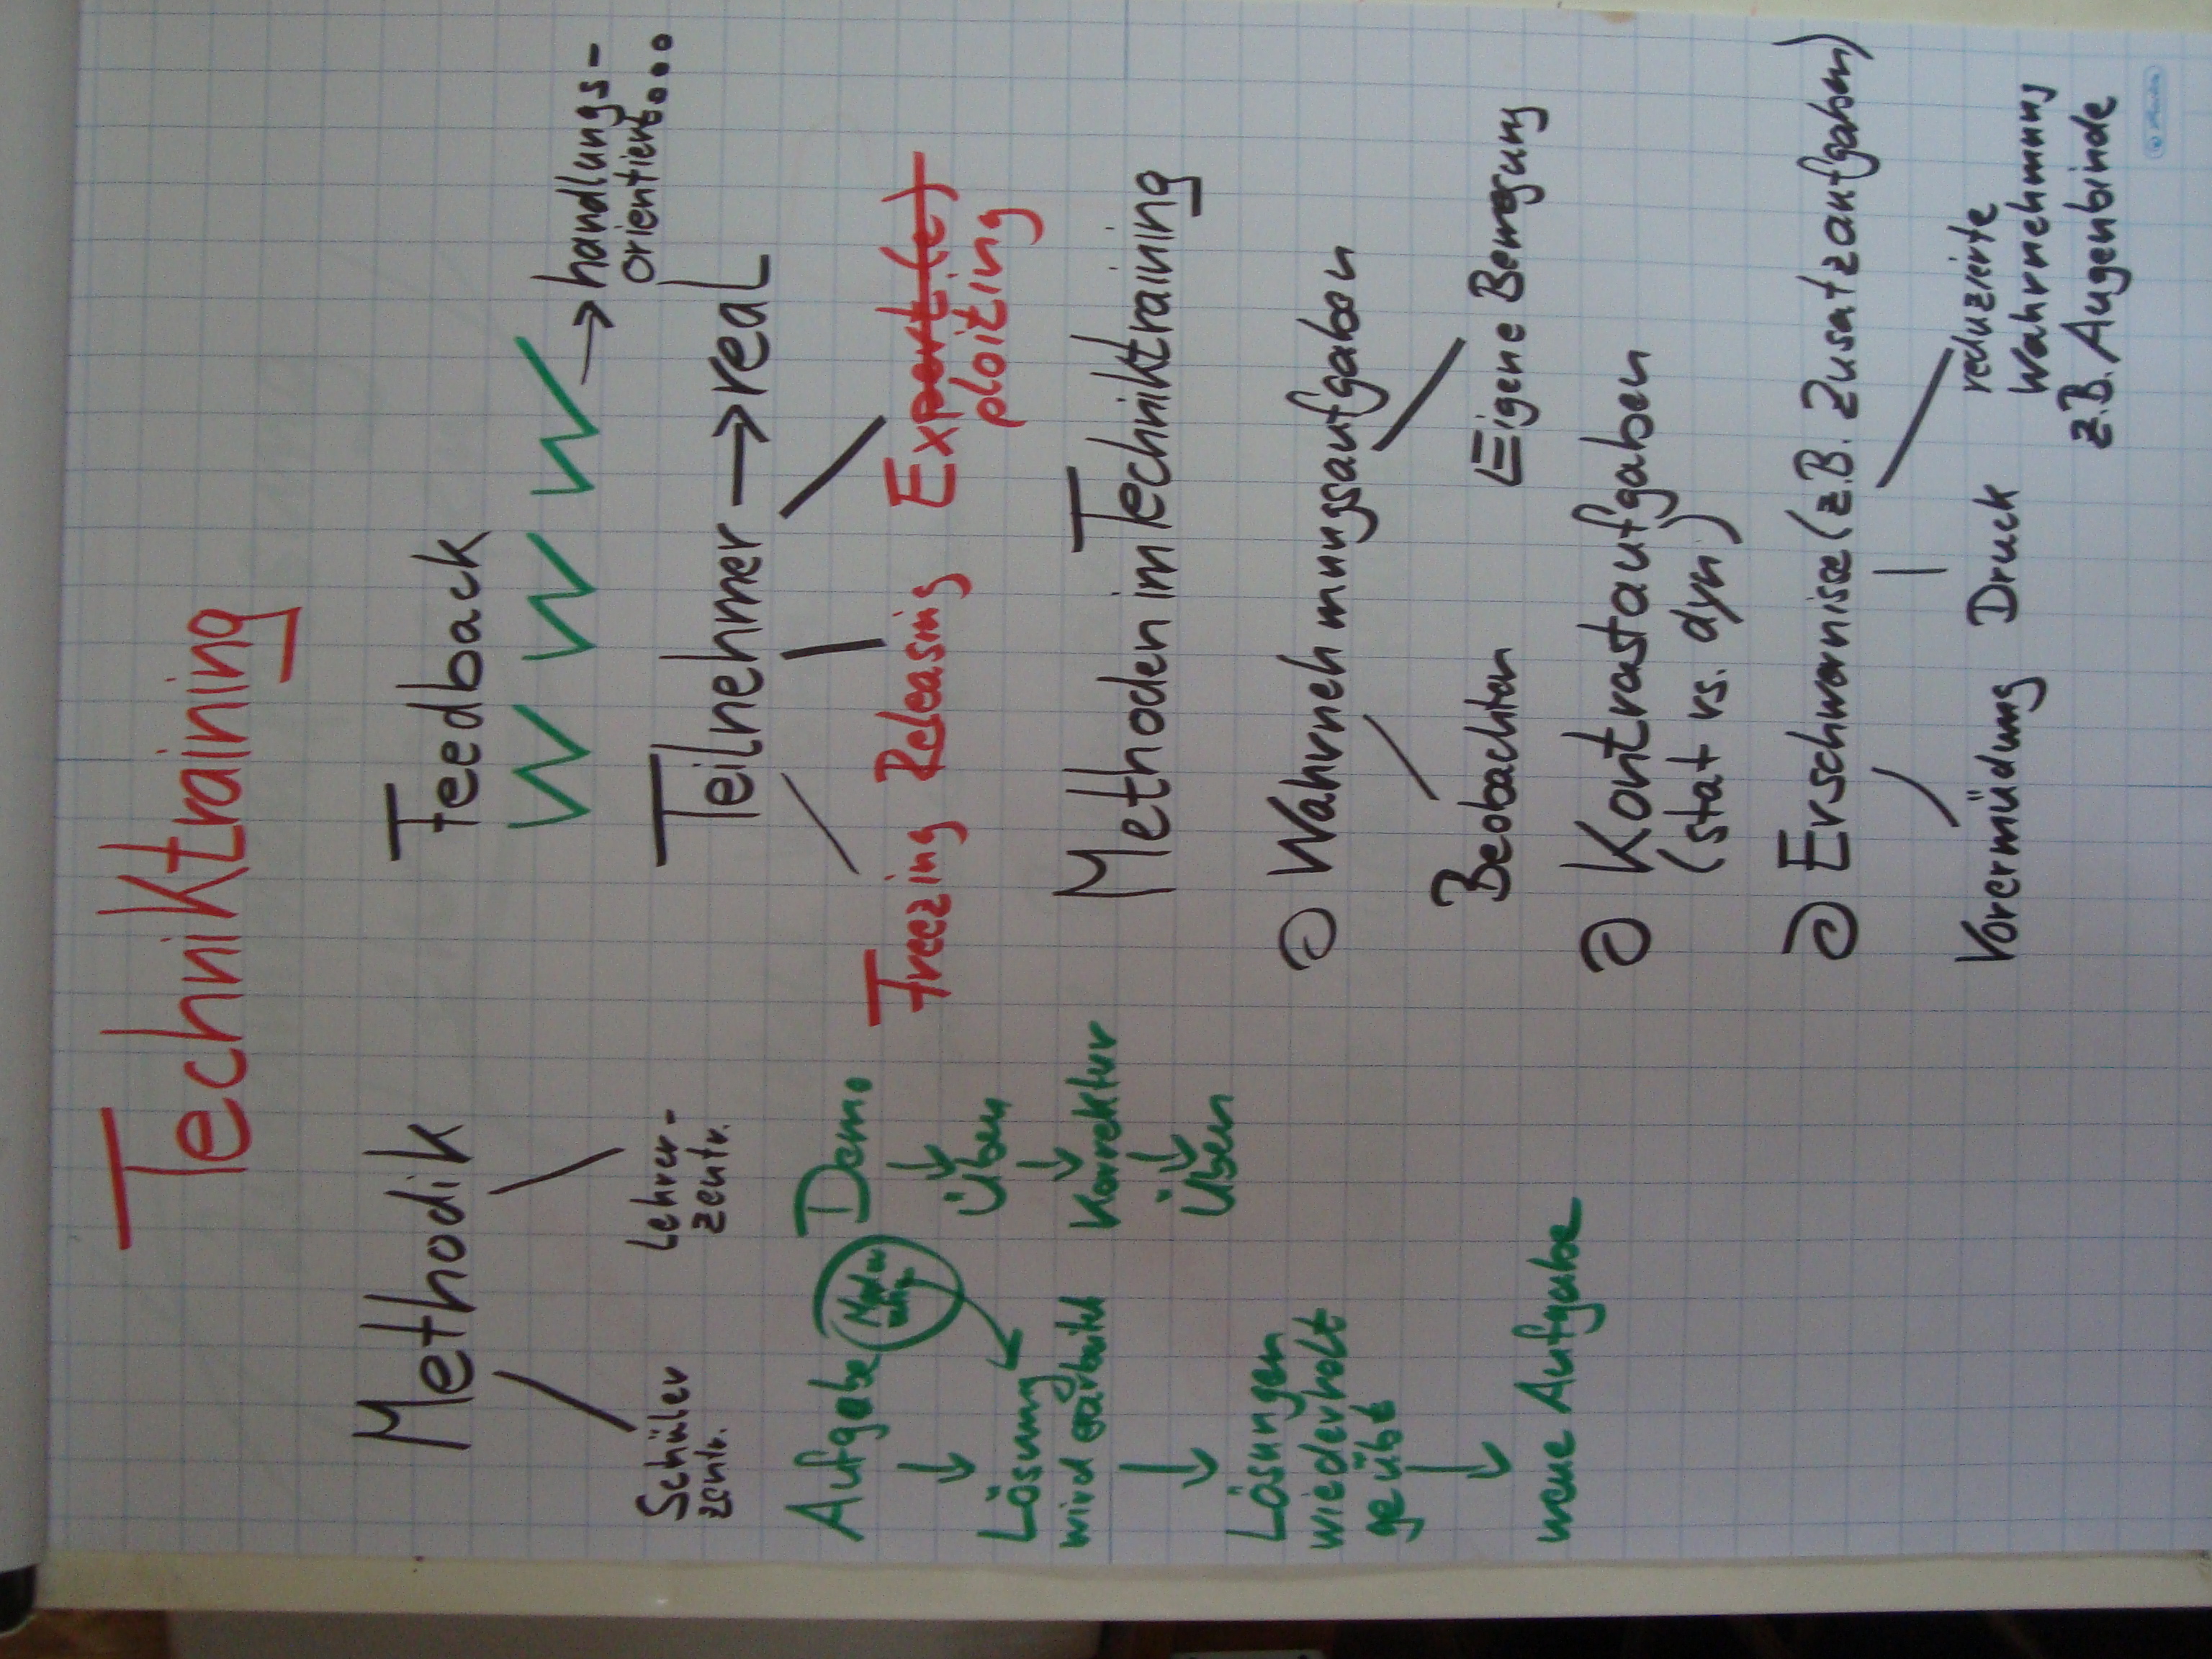 Techniktraining
Methodik
Schüler
zentr.
Lehrer-
zentr.
Aufgabe
Lösung
wird erarbeitet
Lösungen
wiederholt
geübt
neue Aufgabe
Demo
Üben
Korrektur
Üben
Feedback
W W W → handlungs-
orientiert....
Teilnehmer → real
Freezing Releasing Expert(e)
ploiting
Methoden im Techniktraining
Wahrnehmungsaufgaben
Beobachten Eigene Bewegung
Kontrastaufgaben
(stat vs. dyn)
Erschwernisse (z.B. Zusatzaufgaben)
Vorermüdung Druck reduzierte
Wahrnehmung
z.B. Augenbinde